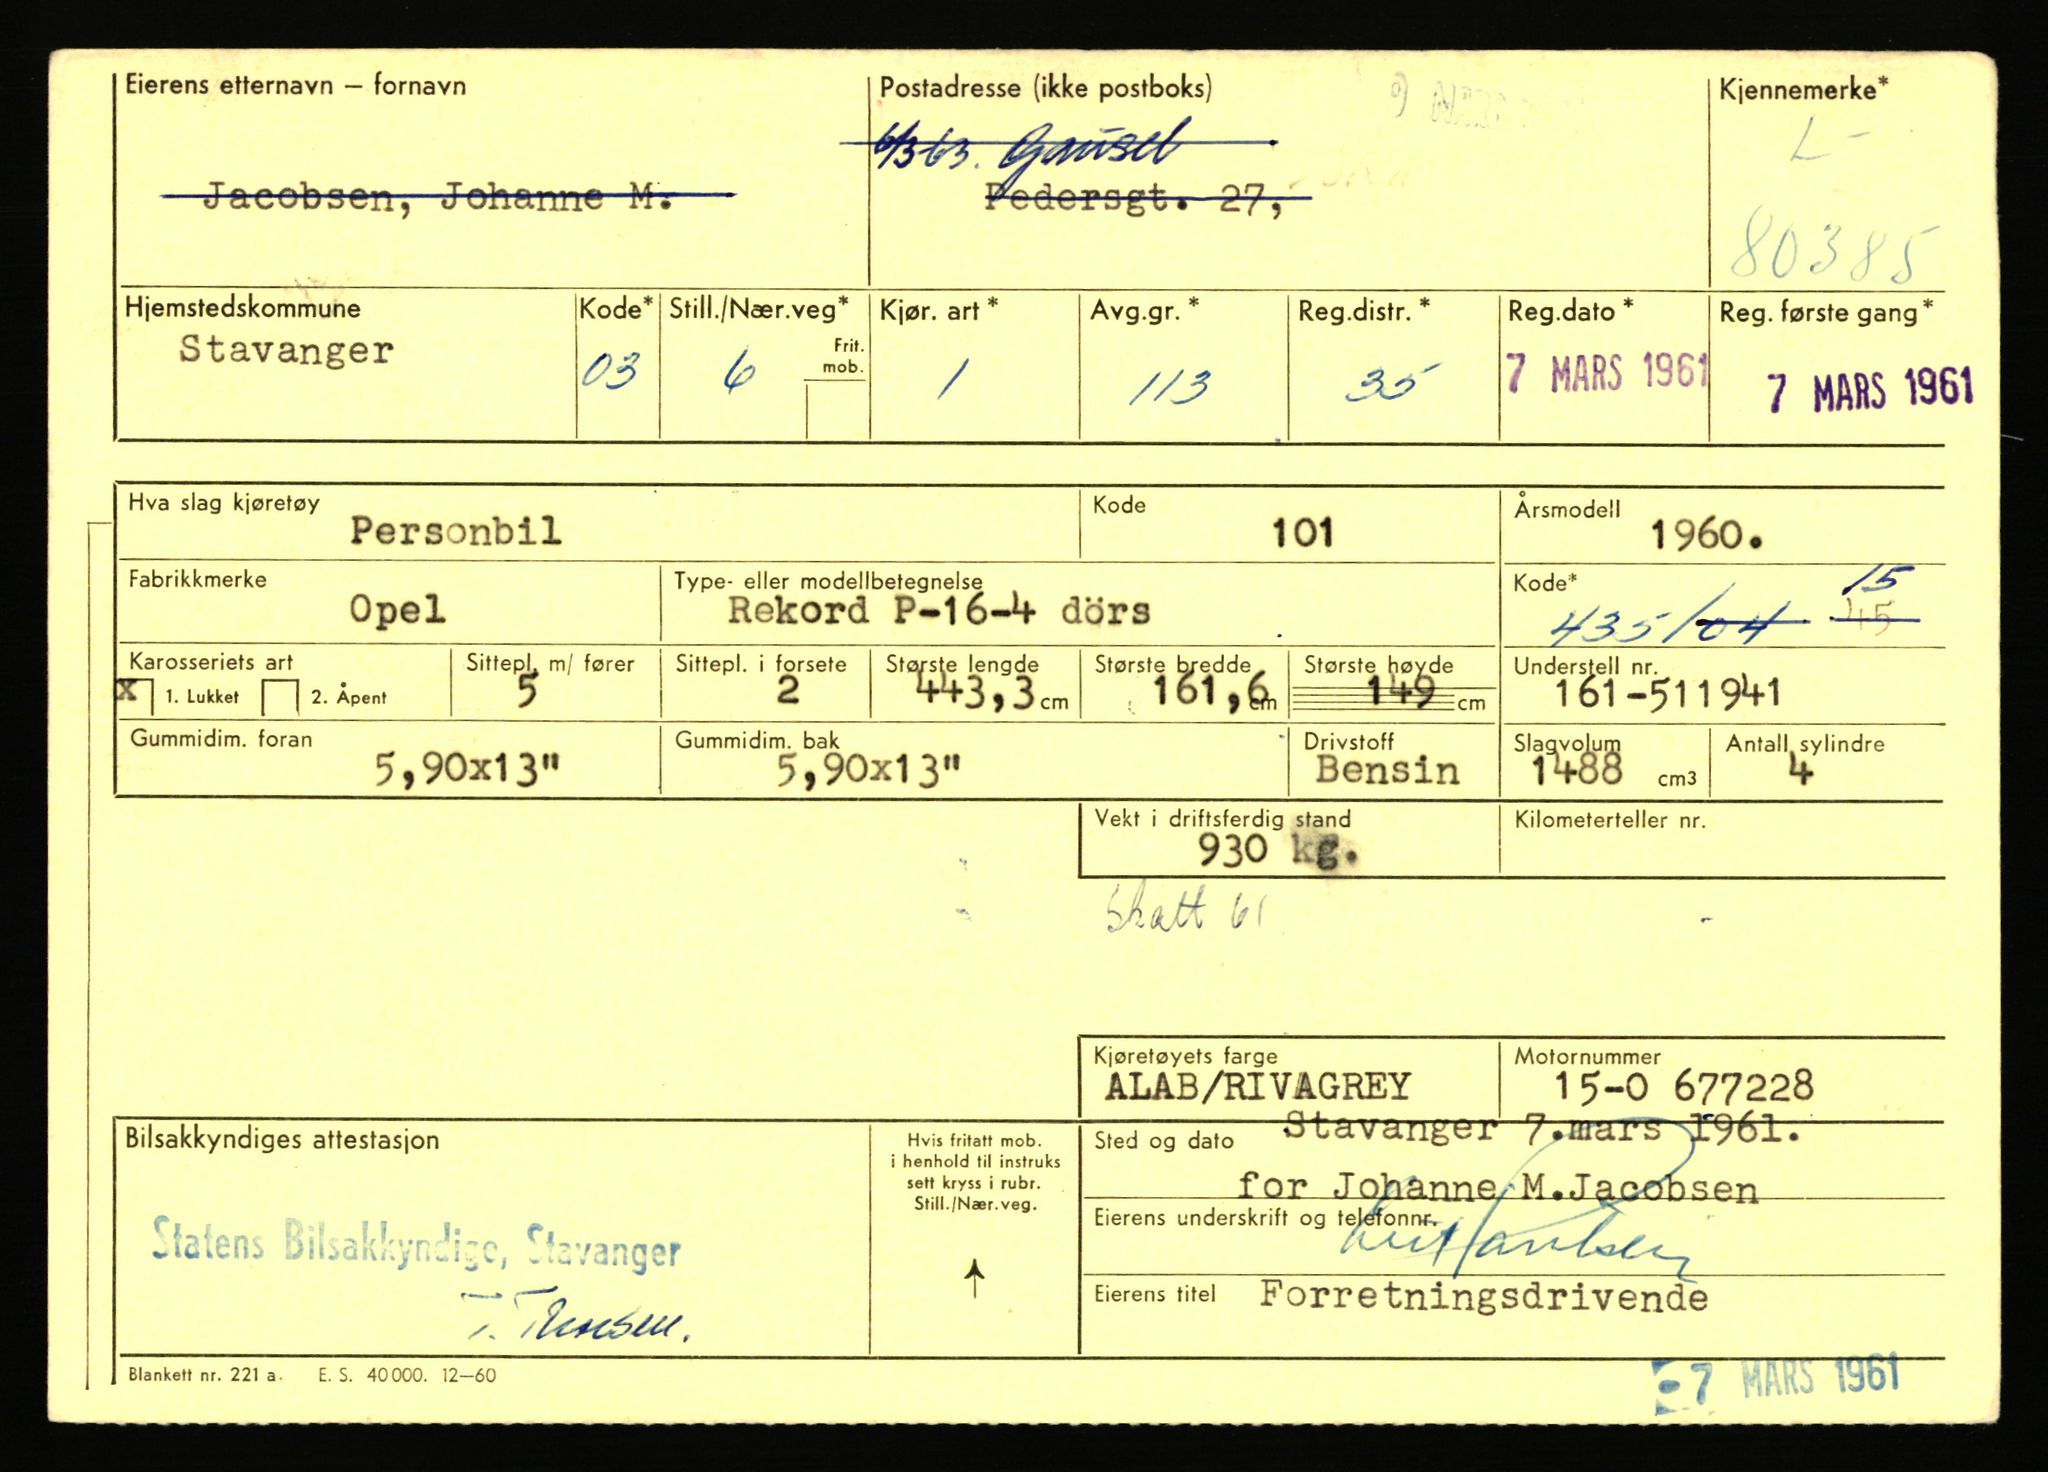 Eierens etternavn – fornavn
Jacobsen, Johanne M.
Postadresse (ikke postboks)
6/3 63. Gausel
Pedersgt. 27,
Kjennemerke*
L-
80385
Hjemstedskommune
Stavanger
Kode*
03
Still./Nær.veg*
6
Frit.
mob.
Kjør. art*
1
Avg.gr.*
113
Reg.distr.*
35
Reg.dato*
7 MARS 1961
Reg. første gang*
7 MARS 1961
Hva slag kjøretøy
Personbil
Kode
101
Årsmodell
1960.
Fabrikkmerke
Opel
Type- eller modellbetegnelse
Rekord P-16-4 dörs
Kode*
15
435/04 45
Karosseriets art
x 1. Lukket 2. Åpent
Sittepl. m/ fører
5
Sittepl. i forsete
2
Største lengde
443,3 cm
Største bredde
161,6 cm
Største høyde
149 cm
Understell nr.
161-511941
Gummidim. foran
5,90x13"
Gummidim. bak
5,90x13"
Drivstoff
Bensin
Slagvolum
1488 cm3
Antall sylindre
4
Vekt i driftsferdig stand
930 kg.
Kilometerteller nr.
Skatt 61
Kjøretøyets farge
ALAB/RIVAGREY
Motornummer
15-0 677228
Bilsakkyndiges attestasjon
Statens Bilsakkyndige, Stavanger
Hvis fritatt mob.
i henhold til instruks
sett kryss i rubr.
Still./Nær.veg.
Sted og dato Stavanger 7.mars 1961.
for Johanne M.Jacobsen
Eierens underskrift og telefonnr.
Eierens titel Forretningsdrivende
Blankett nr. 221 a. E. S. 40000. 12–60
-7 MARS 1961